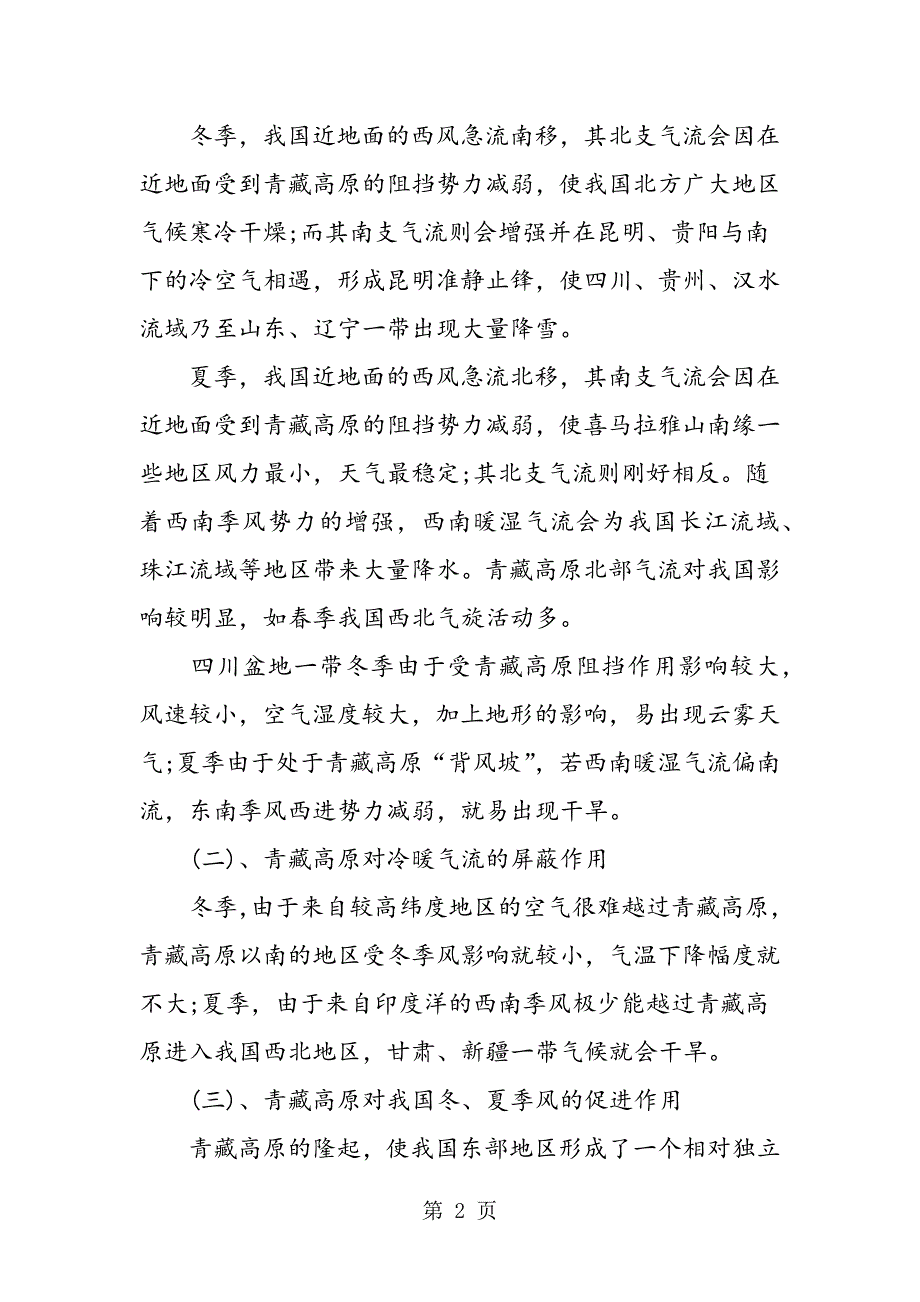 冬季，我国近地面的西风急流南移，其北支气流会因在
近地面受到青藏高原的阻挡势力减弱，使我国北方广大地区
气候寒冷干燥;而其南支气流则会增强并在昆明、贵阳与南
下的冷空气相遇，形成昆明准静止锋，使四川、贵州、汉水
流域乃至山东、辽宁一带出现大量降雪。
夏季，我国近地面的西风急流北移，其南支气流会因在
近地面受到青藏高原的阻挡势力减弱，使喜马拉雅山南缘一
些地区风力最小，天气最稳定;其北支气流则刚好相反。随
着西南季风势力的增强，西南暖湿气流会为我国长江流域、
珠江流域等地区带来大量降水。青藏高原北部气流对我国影
响较明显，如春季我国西北气旋活动多。
四川盆地一带冬季由于受青藏高原阻挡作用影响较大，
风速较小，空气湿度较大，加上地形的影响，易出现云雾天
气;夏季由于处于青藏高原“背风坡”，若西南暖湿气流偏南
流，东南季风西进势力减弱，就易出现干旱。
(二)、青藏高原对冷暖气流的屏蔽作用
冬季,由于来自较高纬度地区的空气很难越过青藏高原，
青藏高原以南的地区受冬季风影响就较小，气温下降幅度就
不大;夏季，由于来自印度洋的西南季风极少能越过青藏高
原进入我国西北地区，甘肃、新疆一带气候就会干旱。
(三)、青藏高原对我国冬、夏季风的促进作用
青藏高原的隆起，使我国东部地区形成了一个相对独立
第 2 页